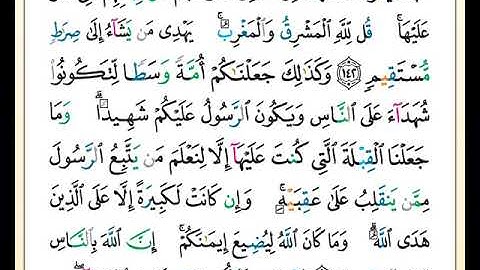 عَلَيْهَا ۚ قُل لِّلَّهِ ٱلْمَشْرِقُ وَٱلْمَغْرِبُ ۚ يَهْدِى مَن يَشَآءُ إِلَىٰ صِرَٰطٍ
مُّسْتَقِيمٍ ﴿١٤٢﴾ وَكَذَٰلِكَ جَعَلْنَٰكُمْ أُمَّةً وَسَطًا لِّتَكُونُوا۟
شُهَدَآءَ عَلَى ٱلنَّاسِ وَيَكُونَ ٱلرَّسُولُ عَلَيْكُمْ شَهِيدًا ۗ وَمَا
جَعَلْنَا ٱلْقِبْلَةَ ٱلَّتِى كُنتَ عَلَيْهَآ إِلَّا لِنَعْلَمَ مَن يَتَّبِعُ ٱلرَّسُولَ
مِمَّن يَنقَلِبُ عَلَىٰ عَقِبَيْهِ ۚ وَإِن كَانَتْ لَكَبِيرَةً إِلَّا عَلَى ٱلَّذِينَ
هَدَى ٱللَّهُ ۗ وَمَا كَانَ ٱللَّهُ لِيُضِيعَ إِيمَٰنَكُمْ ۚ إِنَّ ٱللَّهَ بِٱلنَّاسِ